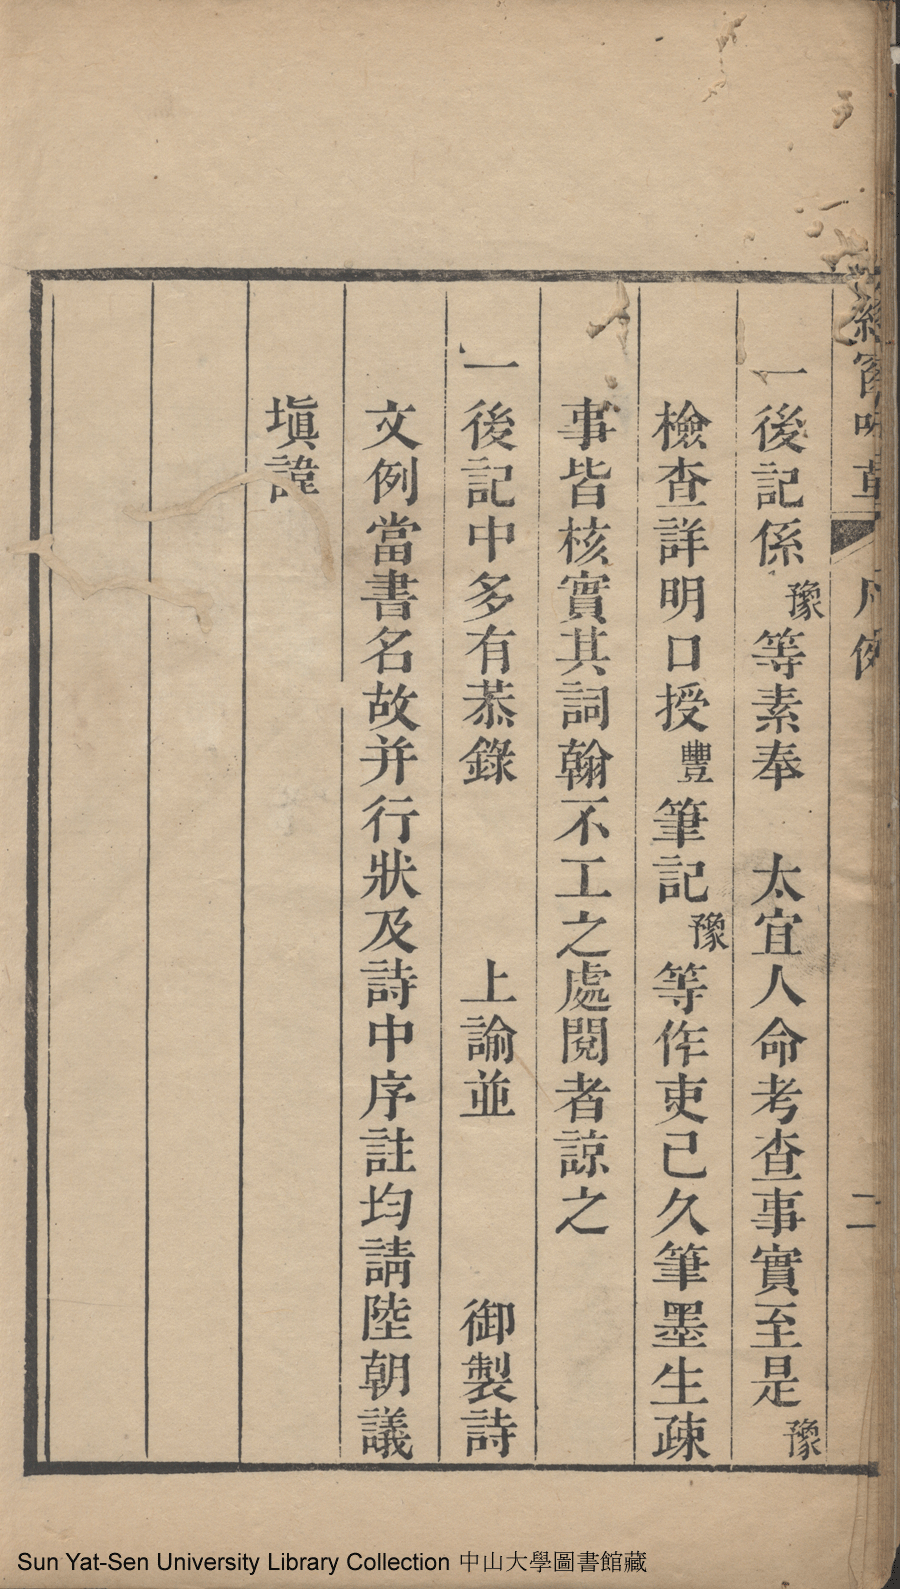 一後記係豫等素奉　太宜人命考查事實至是豫
檢查詳明口授豐筆記豫等作吏已久筆墨生疎
事皆核實其詞翰不工之處閱者諒之
一後記中多有恭錄　　　上諭並　　　御製詩
文例當書名故并行狀及詩中序註均請陸朝議
塡諱
凡例
二
Sun Yat-Sen University Library Collection 中山大學圖書館藏